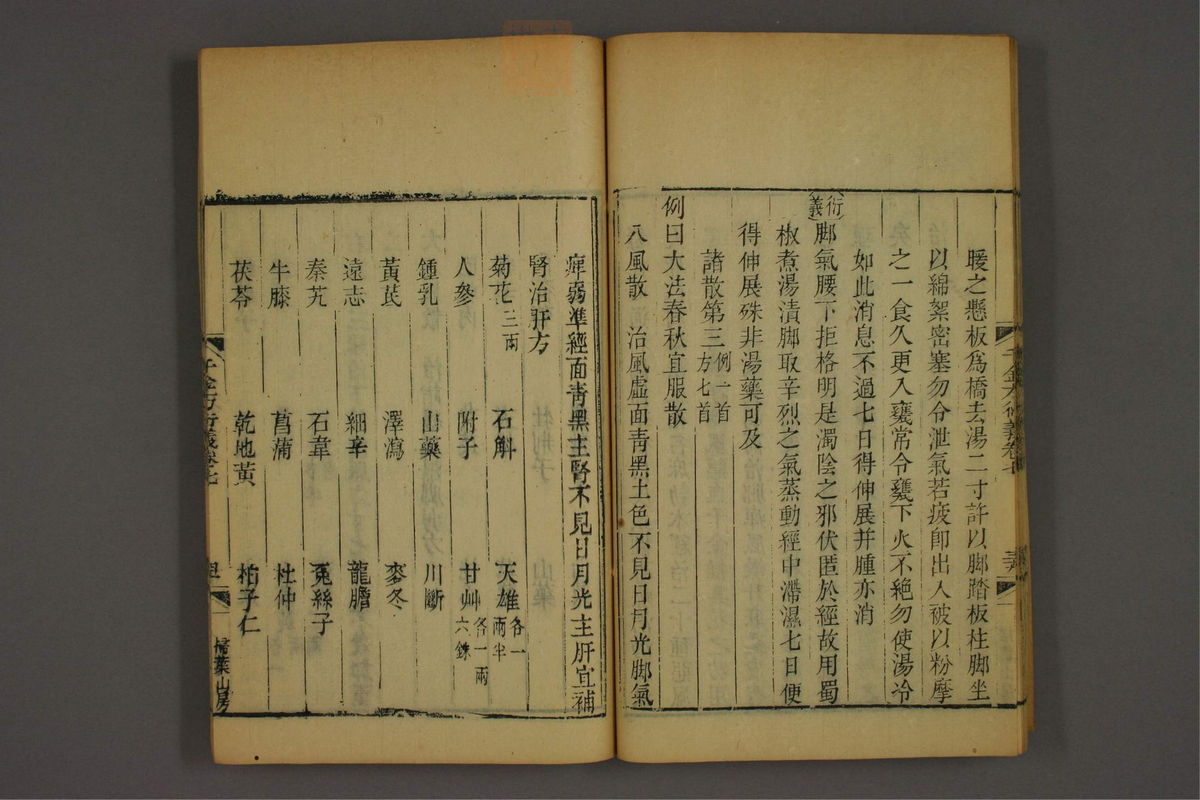 暖之懸板爲橋去湯二寸許以脚踏板柱脚坐
以綿絮密塞勿令泄氣若疲卽出入被以粉摩
之一食久更入甕常令甕下火不絶勿使湯冷
如此消息不過七日得伸展并腫亦消
衍義
脚氣腰下拒格明是濁陰之邪伏匿於經故用蜀
椒煮湯漬脚取辛烈之氣蒸動經中滯濕七日便
得伸展殊非湯藥可及
諸散第三 例一首 方七首
例曰大法春秋宜服散
八風散 治風虛面靑黑土色不見日月光脚氣
痺弱準經面靑黑主腎不見日月光主肝宜補
腎治肝方
菊花三兩 石斛 天雄各一兩半
人參 附子 甘艸各一兩六銖
鍾乳 山藥 川斷
黃芪 澤瀉 麥冬
遠志 細辛 龍膽
秦艽 石韋 菟絲子
牛膝 菖蒲 杜仲
茯苓 乾地黃 柏子仁
千金方衍義卷七
掃葉山房